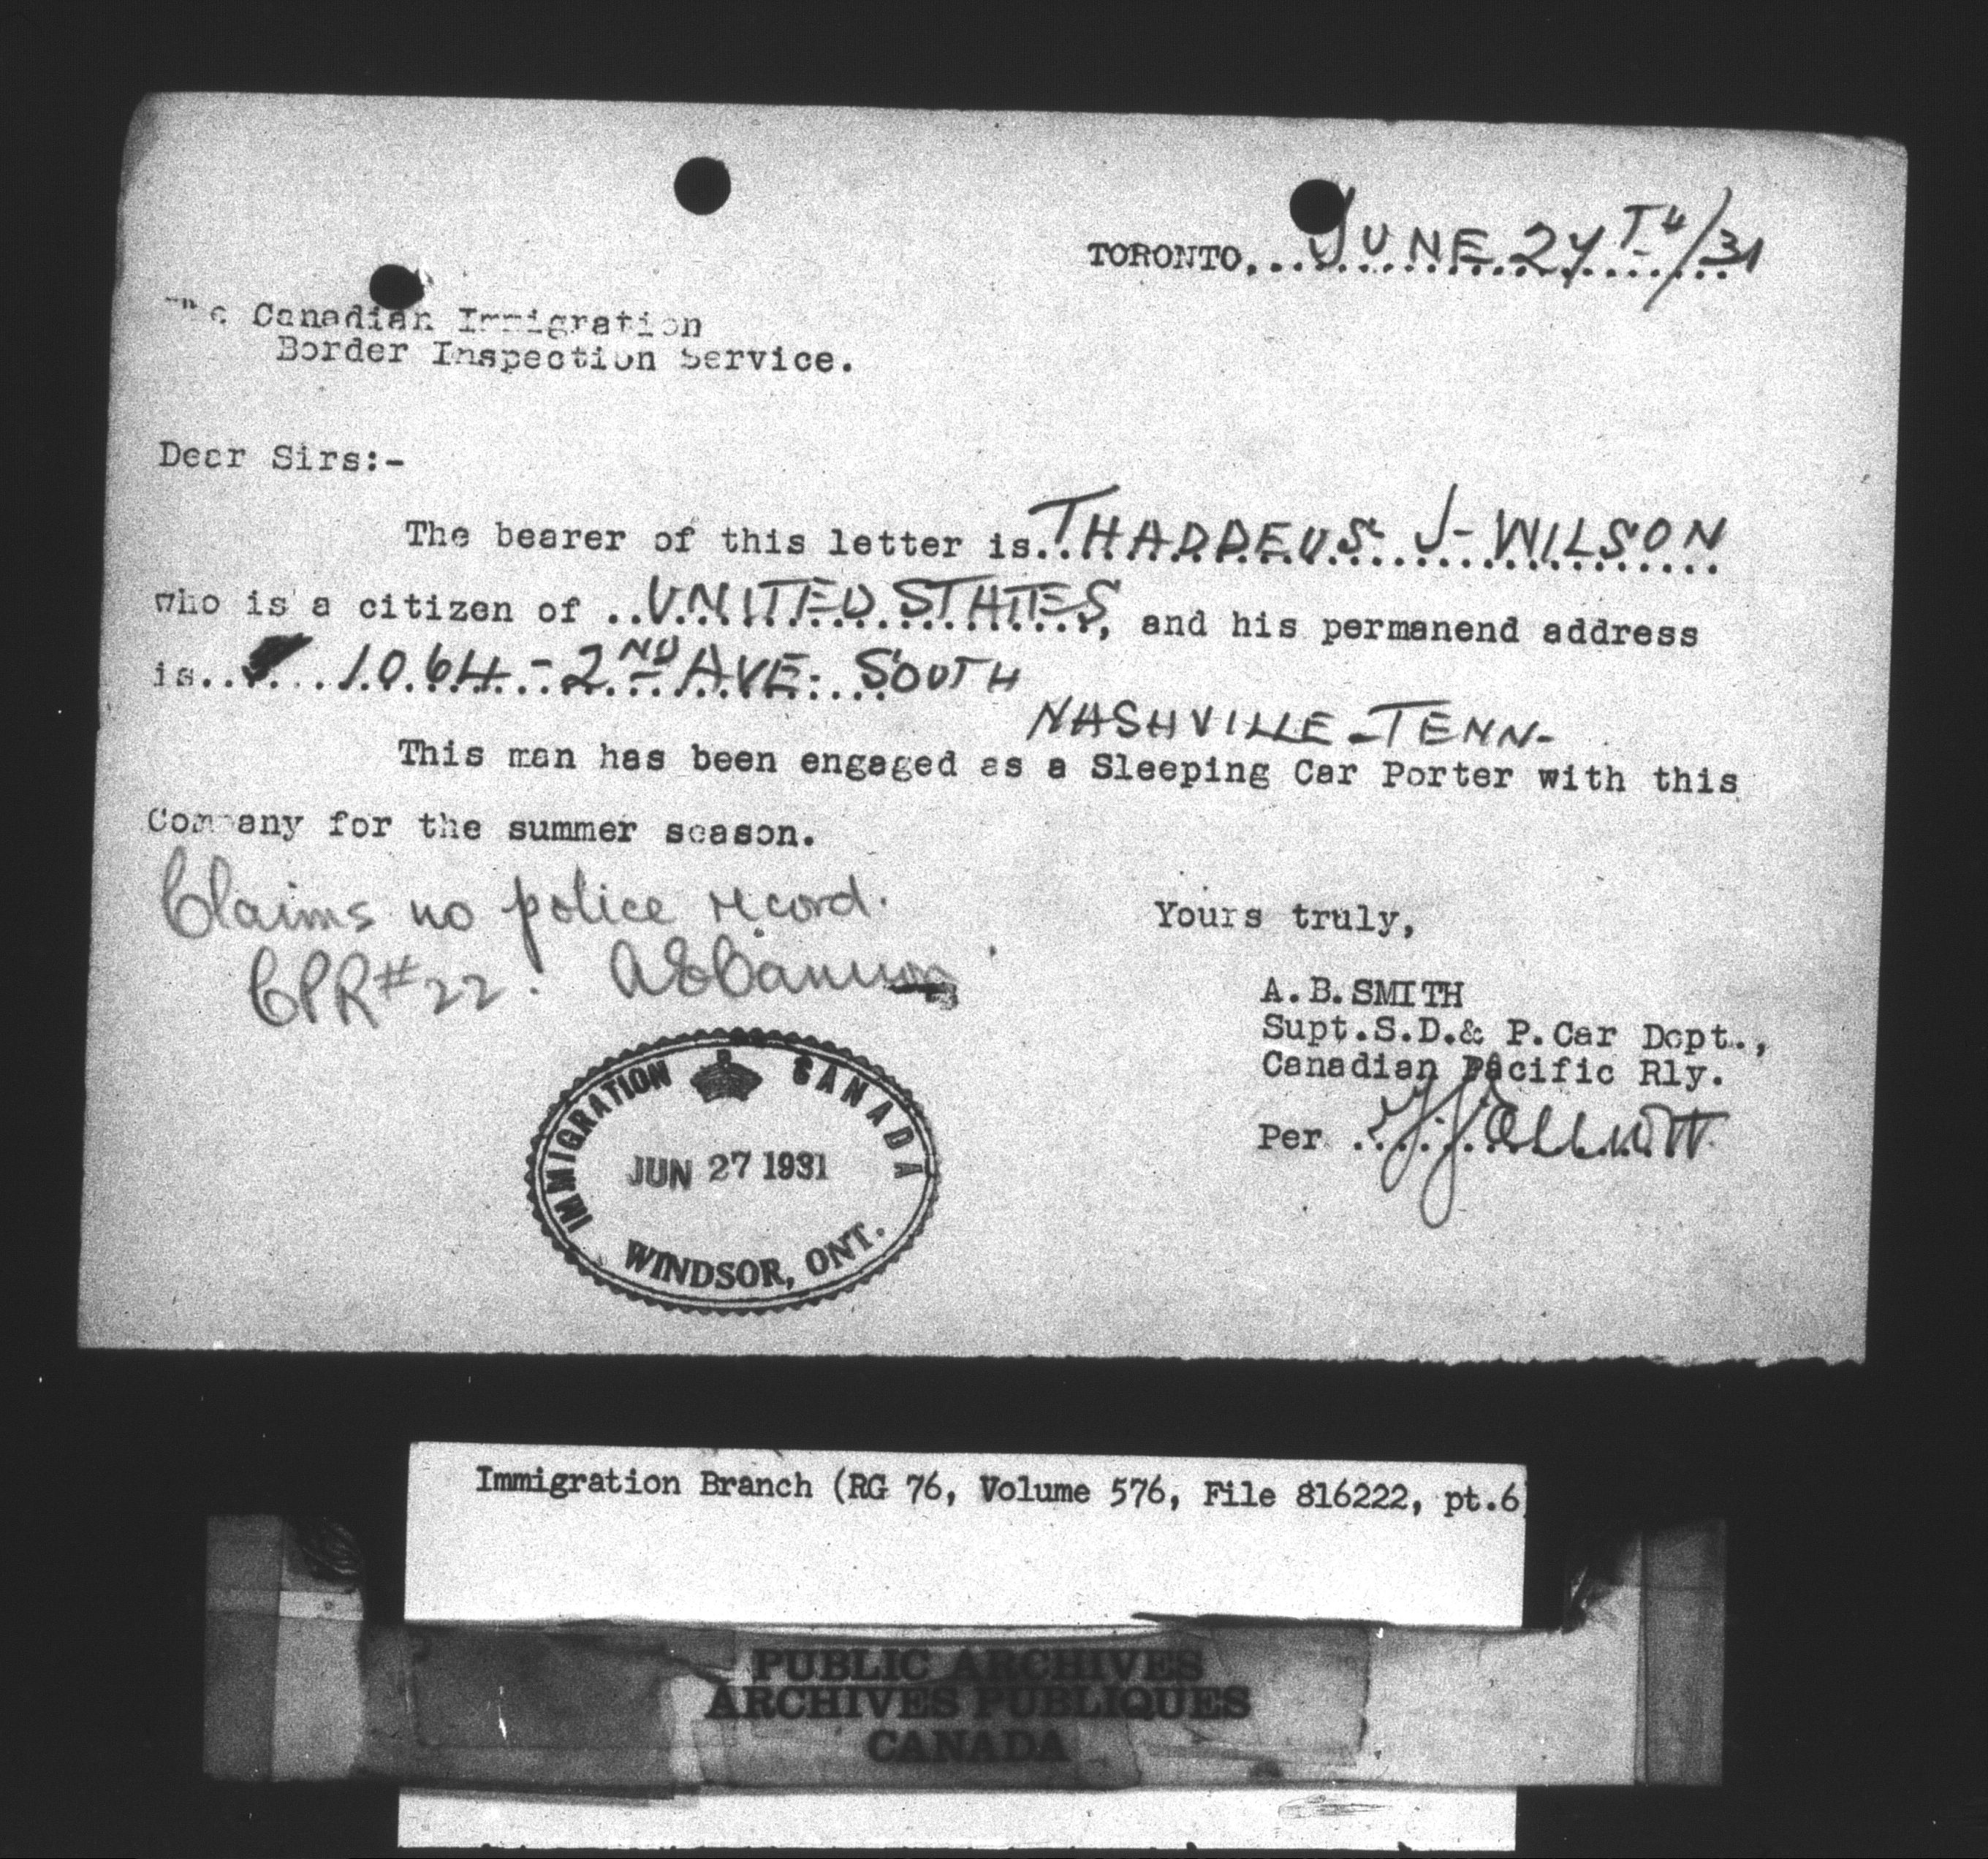 TORONTO, JUNE 24TH/31
The Canadian Immigration
Border Inspection Service.
Dear Sirs:-
The bearer of this letter is THADDEUS J- WILSON
who is a citizen of UNITED STATES, and his permanend address
is 1064 - 2ND AVE. SOUTH
NASHVILLE - TENN-
This man has been engaged as a Sleeping Car Porter with this
Company for the summer season.
Claims no police record.
CPR #22.
Yours truly,
A.B.SMITH
Supt.S.D.& P.Car Dept.,
Canadian Pacific Rly.
Per
IMMIGRATION CANADA
JUN 27 1931
WINDSOR, ONT.
Immigration Branch (RG 76, Volume 576, File 816222, pt.6)
PUBLIC ARCHIVES
ARCHIVES PUBLIQUES
CANADA